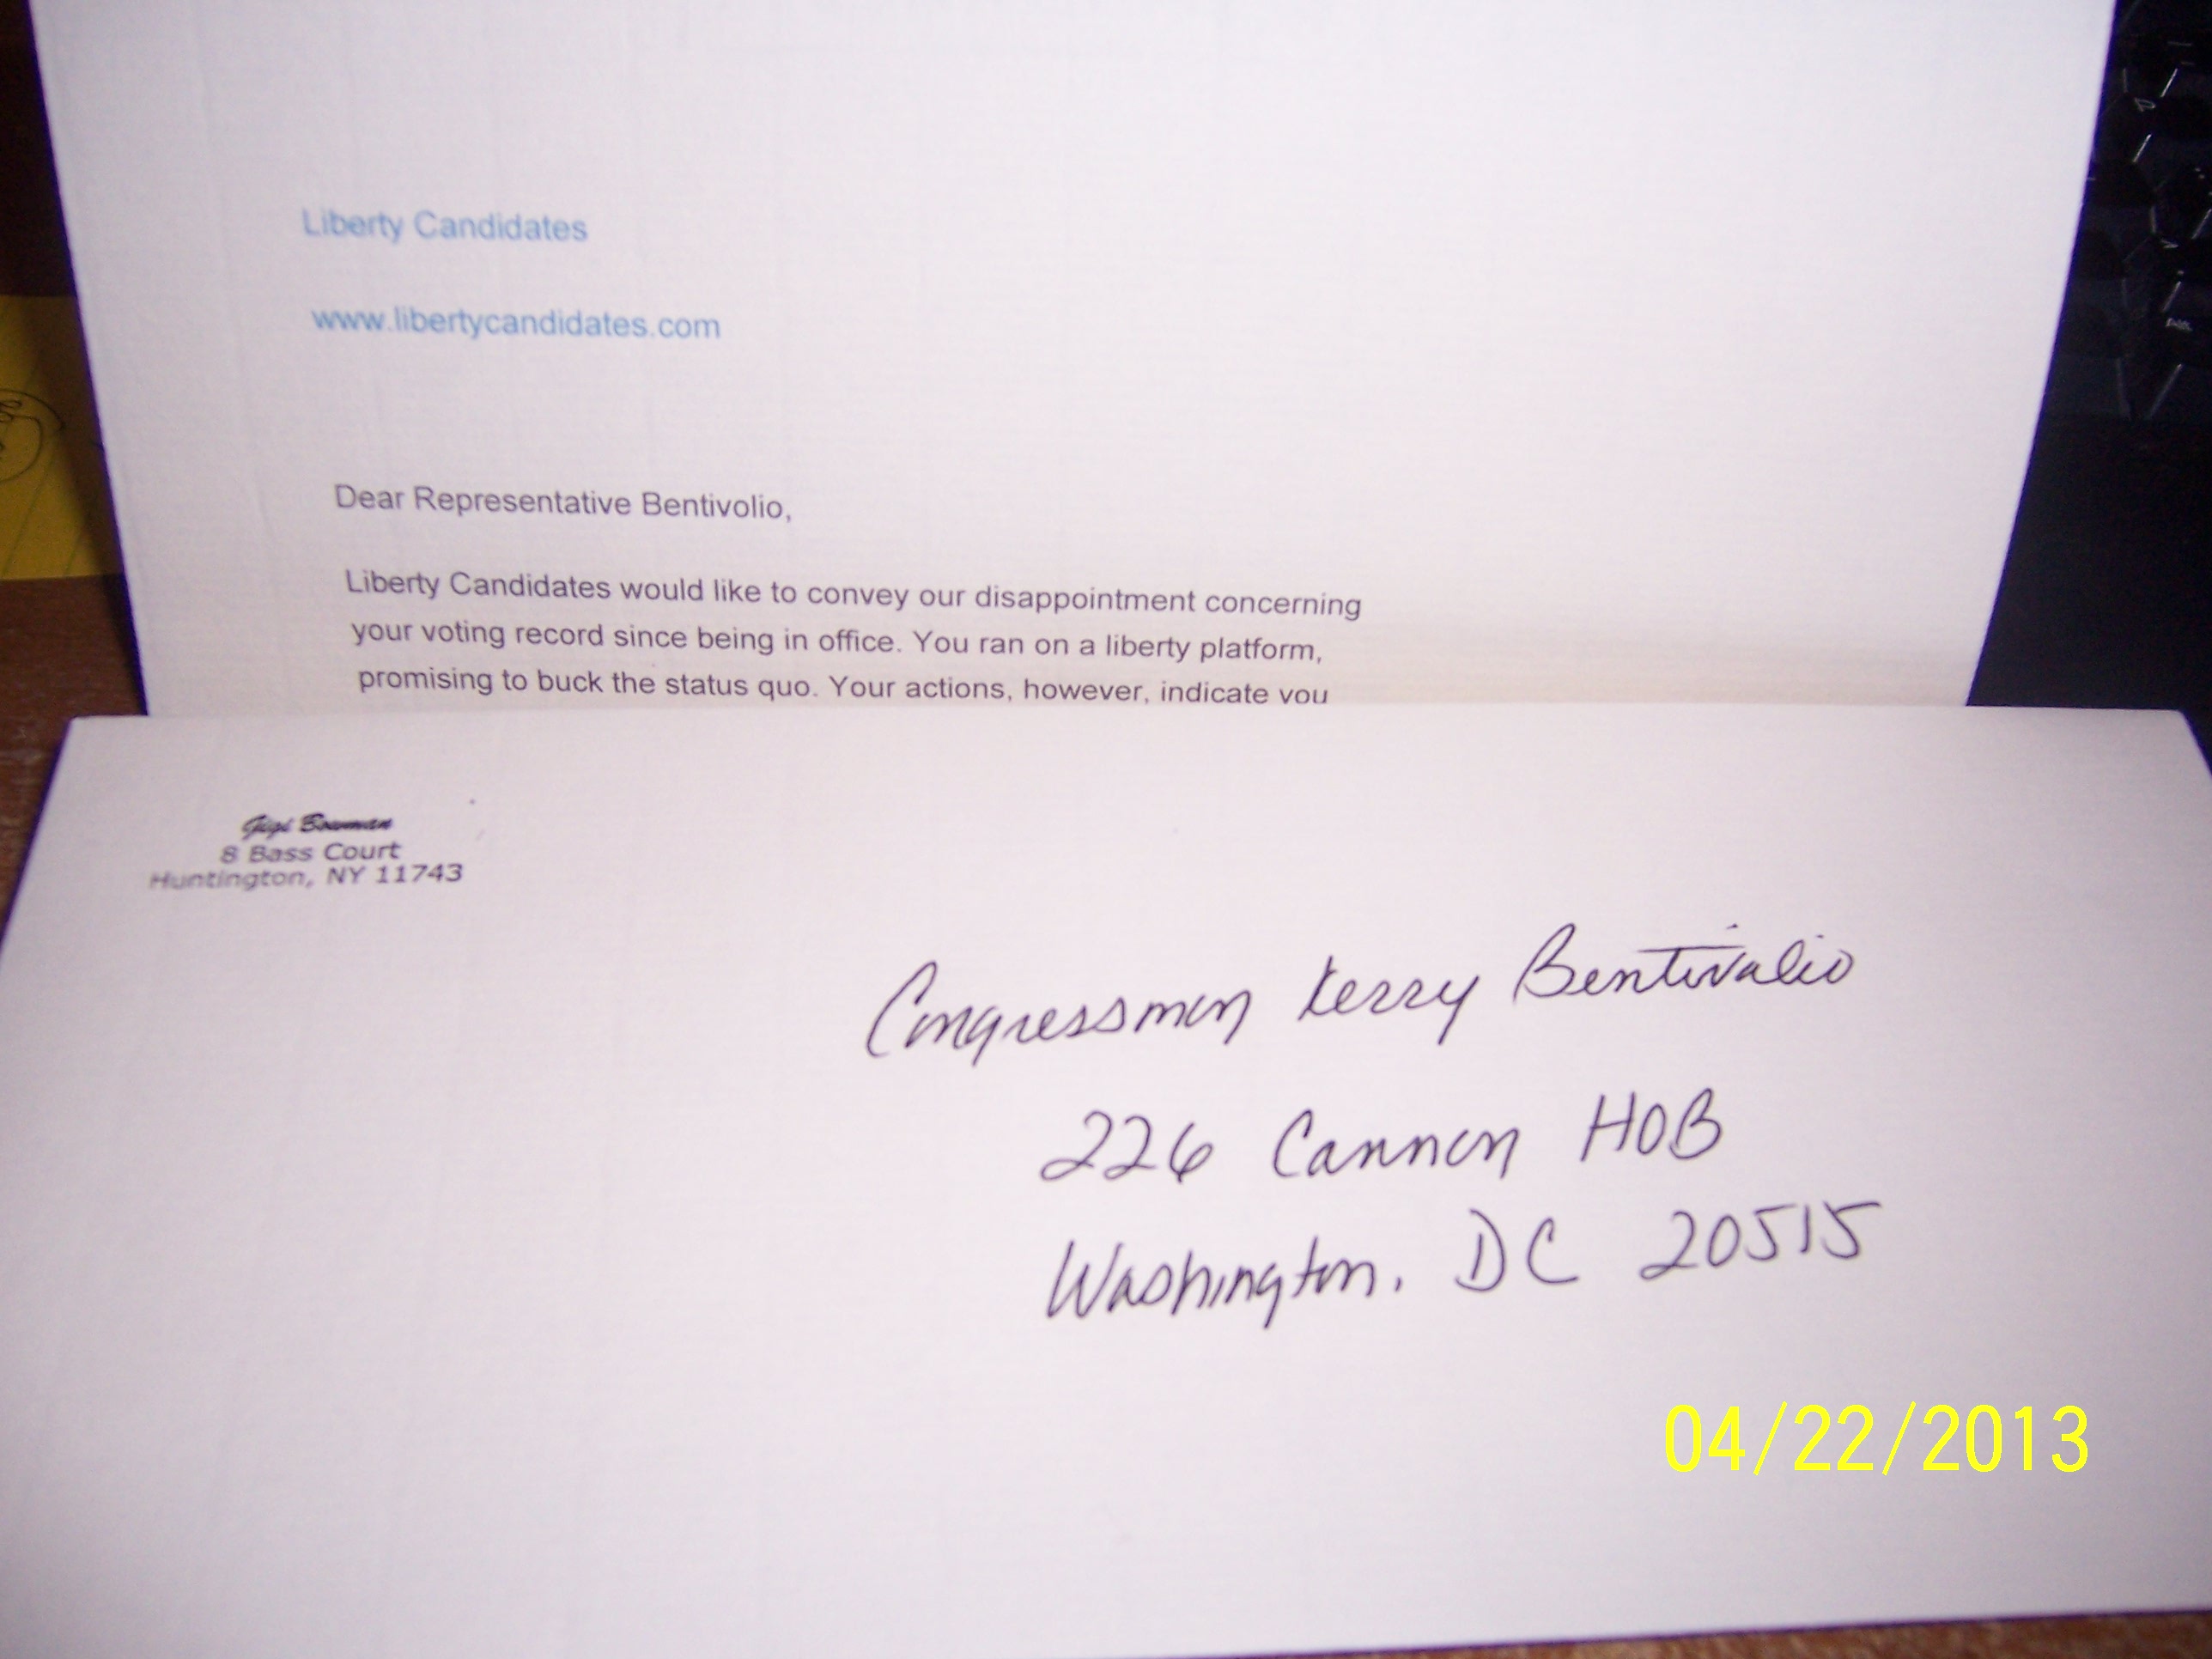 Liberty Candidates
www.libertycandidates.com
Dear Representative Bentivolio,
Liberty Candidates would like to convey our disappointment concerning
your voting record since being in office. You ran on a liberty platform,
promising to buck the status quo. Your actions, however, indicate you
Gigi Bowman
8 Bass Court
Huntington, NY 11743
Congressman Kerry Bentivolio
226 Cannon HOB
Washington, DC 20515
04/22/2013